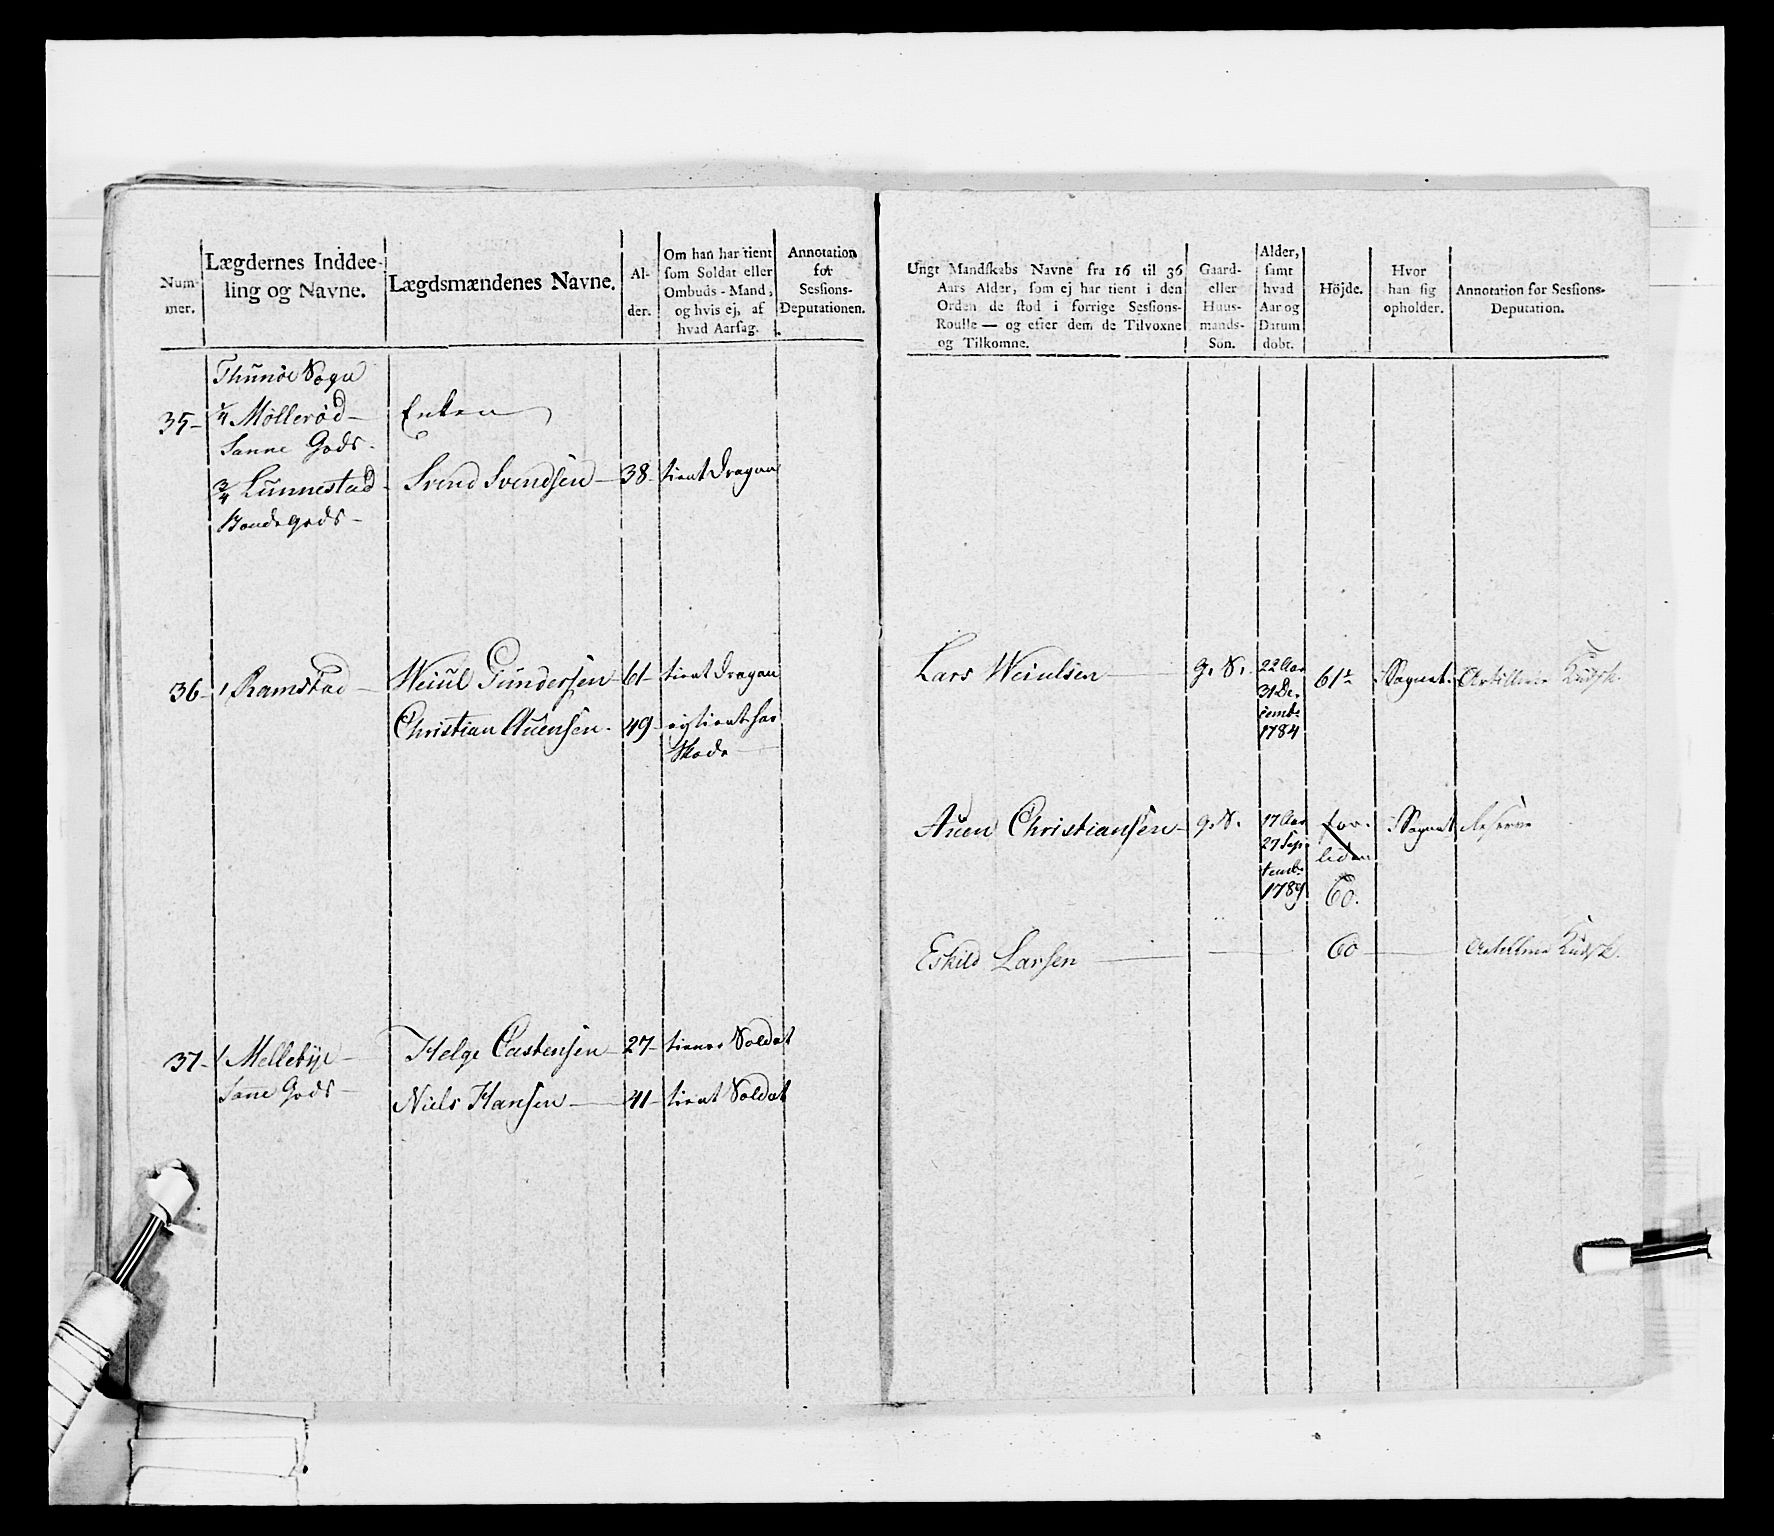 Num-
mer.
Lægdernes Inddee-
ling og Navne.
Lægdsmændenes Navne.
Al-
der.
Om han har tient
som Soldat eller
Ombuds-Mand,
og hvis ej, af
hvad Aarsag.
Annotation
for
Sessions-
Deputationen.
Thunöe Sogn
35- 1/4 Möllerød- Enken
Sanne Gods-
3/4 Lunnestad- Svend Svendsen- 38- tient Dragon
Bondegods-
36- 1 Ramstad- Weiul Gundersen- 61- tient Dragon
Christian Auensen- 49- ej tient for
Skade
37- 1 Mellebÿe- Helge Castensen- 27- tiener Soldat
Sane Gods- Niels Hansen- 41- tient Soldat
Ungt Mandskabs Navne fra 16 til 36
Aars Alder, som ej har tient i den
Orden de stod i forrige Sessions-
Roulle — og efter dem de Tilvoxne
og Tilkomne.
Gaard-
eller
Huus-
mands-
Søn.
Alder,
samt
hvad
Aar og
Datum
døbt.
Höjde.
Hvor
han sig
opholder.
Annotation for Sessions-
Deputation.
Lars Weiulsen- g. S. 22 Aar 61½ i Sognet. Artillerie Kudsk.
31 De-
cembr
1784
Auen Christiansen- g. S. 17 Aar for- i Sognet Reserve
27 Sep- liden
tembr
1789 60.
Eskild Larsen — 60 — Artillerie Kudsk.